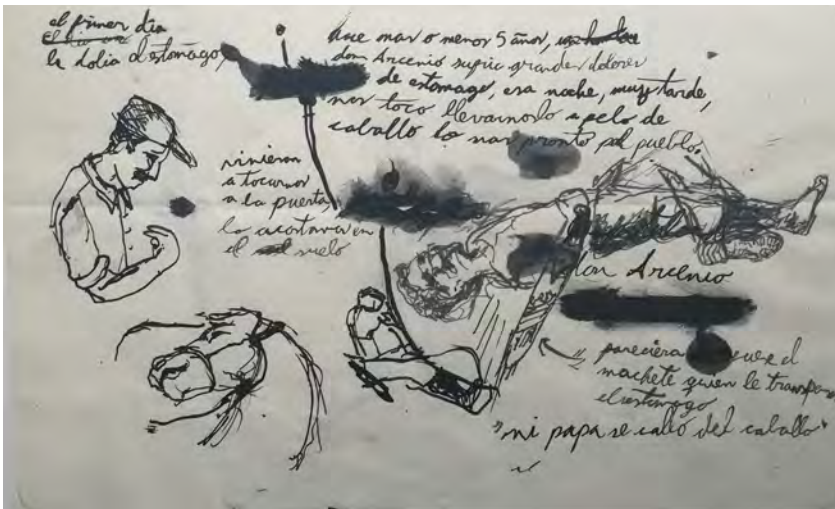 el primer dia
le dolia el estomago
hace mas o menos 5 años,
don Arcenio supria grandes dolores
de estomago, esa noche, muy tarde,
nos toco llevarnoslo a pelo de
caballo lo mas pronto pal pueblo.
vinieron
a tocarnos
a la puerta,
lo acostaron en
el suelo
don Arcenio
pareciera
machete quien le
el estomago
"mi papa se calló del caballo"